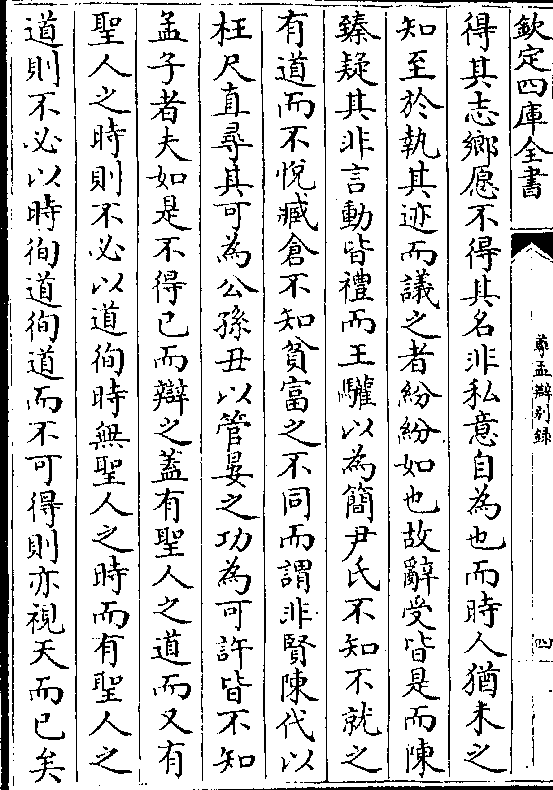 欽定四庫全書
尊孟辨別錄
四
得其志鄉愿不得其名非私意自為也而時人猶未之
知至於執其迹而議之者紛紛如也故辭受皆是而陳
臻疑其非言動皆禮而王驩以為簡尹氏不知不就之
有道而不悅臧倉不知貧富之不同而謂非賢陳代以
枉尺直尋其可為公孫丑以管晏之功為可許皆不知
孟子者夫如是不得已而辯之葢有聖人之道而又有
聖人之時則不必以道徇時無聖人之時而有聖人之
道則不必以時徇道徇道而不可得則亦視天而已矣